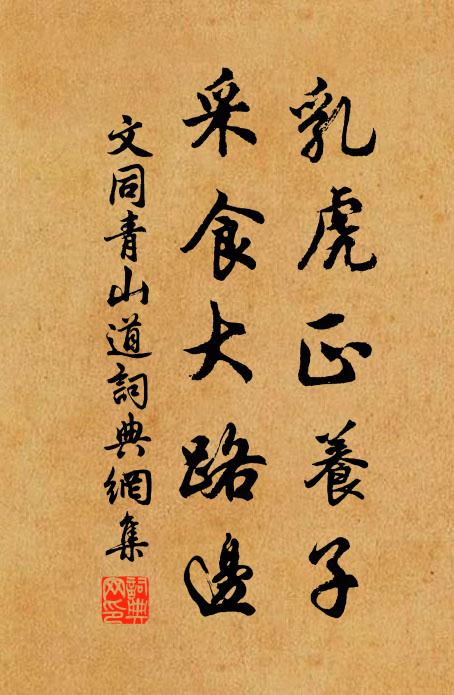 乳虎正養子
采食大路邊
文同青山道詞典網集
詞典網印